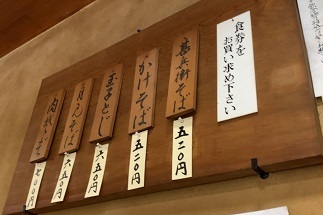 食券を
お買い求め下さい
甚兵衛そば
五二〇円
かけそば
五二〇円
玉子とじ
六五〇円
月見そば
六五〇円
七〇〇円